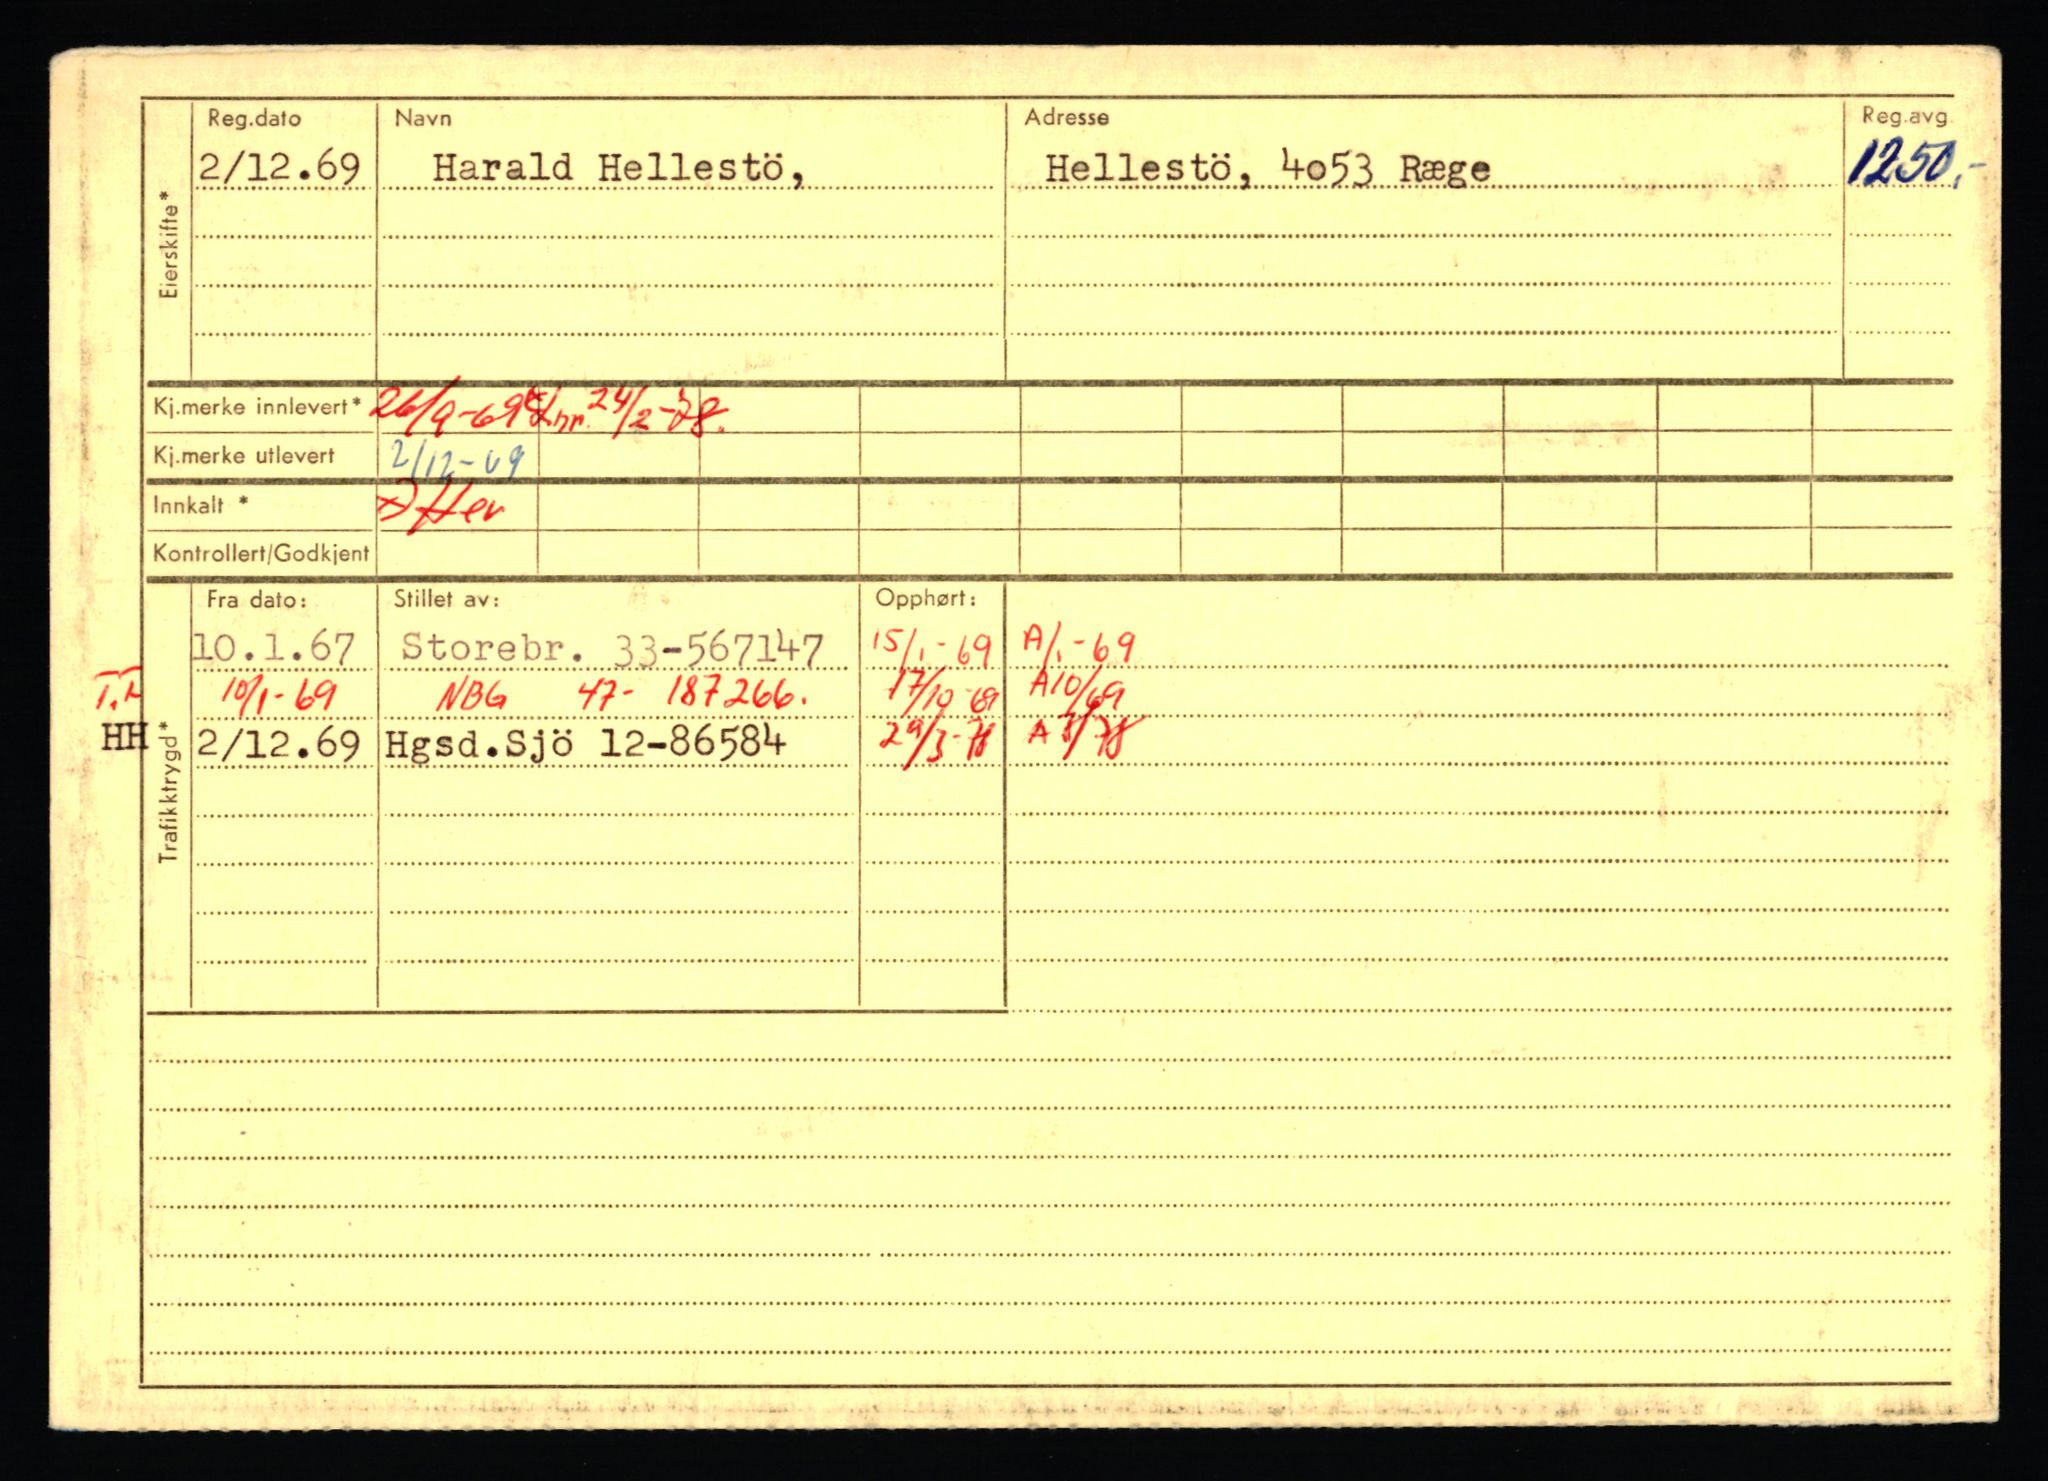 Reg.dato Navn Adresse Reg.avg
2/12.69 Harald Hellestö, Hellestö, 4o53 Ræge 1250,-
Eierskifte*
Kj.merke innlevert* 26/9-69 24/2-78.
Kj.merke utlevert 2/12-69
Innkalt *
Kontrollert/Godkjent
Fra dato: Stillet av: Opphørt:
10.1.67 Storebr. 33-567147 15/1-69 A/1-69
10/1-69 NBG 47- 187266. 17/10-69 A10/69
HH 2/12.69 Hgsd.Sjö 12-86584 29/3-78 A 3/78
Trafikktrygd*